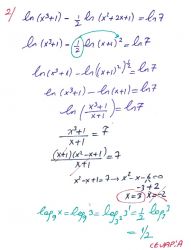 2/
ln(x³+1) - 1/2 ln(x²+2x+1) = ln7
ln(x³+1) - 1/2 ln(x+1)² = ln7
ln(x³+1) - ln((x+1)²)^(1/2) = ln7
ln(x³+1) - ln(x+1) = ln7
ln((x³+1)/(x+1)) = ln7
(x³+1)/(x+1) = 7
(x+1)(x²-x+1)/(x+1) = 7
x²-x+1=7 → x²-x-6=0
-3 +2
x=3 x=-2
log₉x = log₉3 = log₃²3¹ = 1/2 log₃3
= 1/2
CEVAP: A